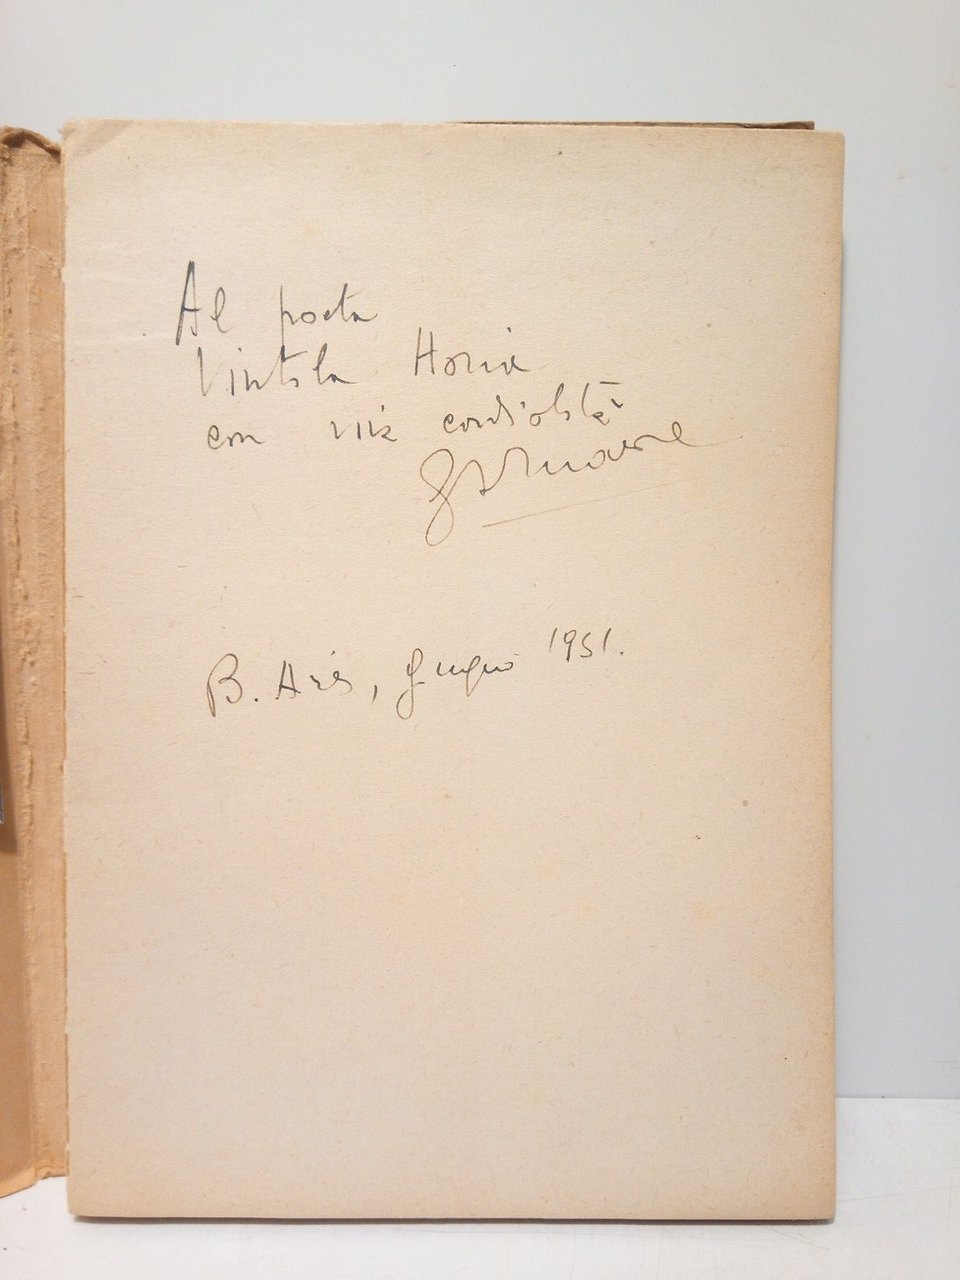 Al poeta
Vintila Horia
con viva cordialità
B. Aires, giugno 1951.